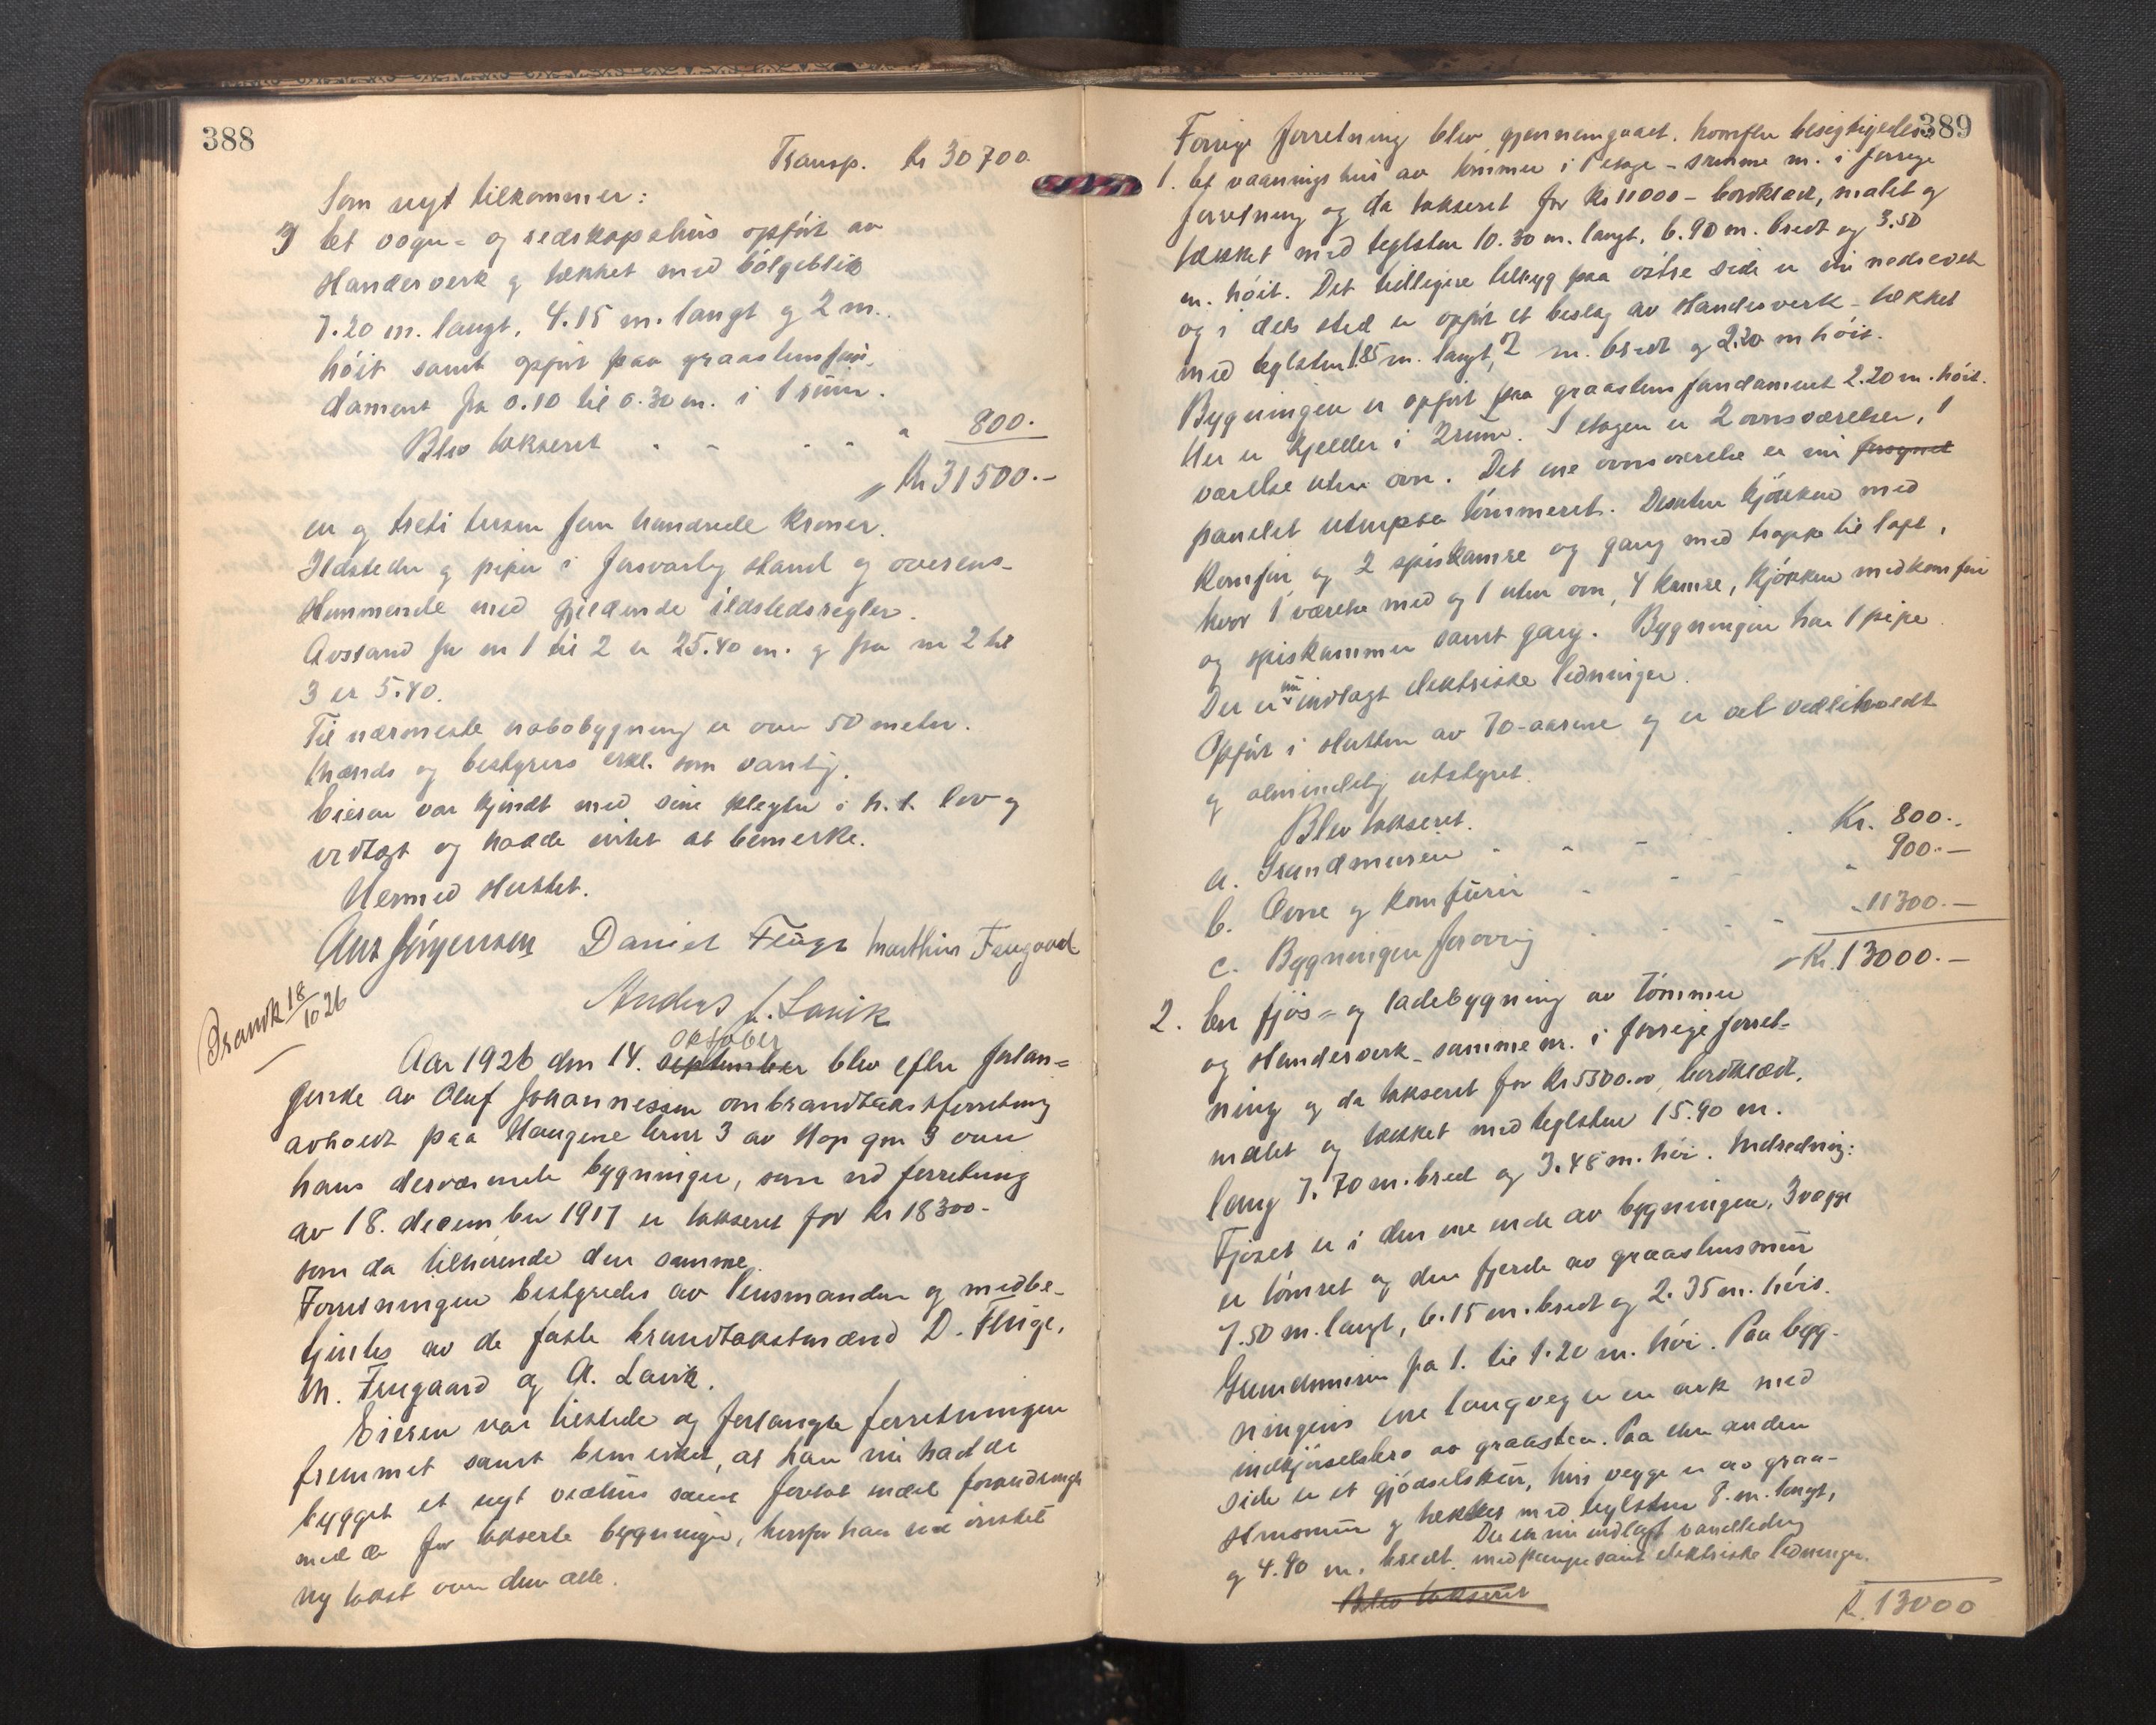 388
Transp. Kr 30700.
Som nyt tilkommer:
3) Et vogn- og redskapshus opført av
standerverk og tækket med bølgeblik
7.20 m. langt, 4.15 m. langt og 2 m.
høit samt opført paa graastensfun-
dament fra 0.10 til 0.30 m. i 1 rum.
Blev takseret " 800.-
Kr 31500.-
en og treti tusen fem hundrede kroner.
Ildsteder og piper i forsvarlig stand og overens-
stemmende med gjeldende ildstedsregler.
Avstand fra nr 1 til 2 er 25.40 m. og fra nr 2 til
3 er 5.40.
Til nærmeste nabobygning er over 50 meter.
Mænds og bestyrers erkl. som vanlig.
Eieren var kjendt med sine plegter i h. t. lov og
vedtægt og hadde intet at bemerke.
Hermed sluttet.
Ans Jörgensen Daniel Fluge Matthias Fengaard
Anders J. Lavik
Branvk 18/10 26
oktober
Aar 1926 den 14. september blev efter forlan-
gende av Oluf Johannessen ombrandtakstforretning
avholdt paa Haugene brnr 3 av Hop gnr 3 over
hans derværende bygninger, som ved forretning
av 18. december 1917 er takseret for kr 18300.-
som da tilhørende den samme.
Forretningen bestyredes av lensmanden og medbe-
tjentes av de faste brandtakstmænd D. Fluge,
M. Fengaard og A. Lavik.
Eieren var tilstede og forlangte forretningen
fremmet samt bemerket, at han nu hadde
bygget et nyt vedhus samt foretat endel forandringer
med de før takserte bygninger, hvorfor han nu ønsket
ny takst over dem alle.
389
Forrige forretning blev gjennemgaaet, hvorefter besigtigedes:
1. Et vaaningshus av tømmer i 1 etage - samme nr. i forrige
forretning og da takseret for kr 11000 - bordklædt, malet og
tækket med teglsten 10.30 m. langt, 6.90 m. bredt og 3.50
m. høit. Det tidligere tilbygg paa østre side er nu nedrevet
og i dets sted er opført et beslag av standerverk - tækket
med teglsten 1.85 m. langt, 2 m. bredt og 2.20 m høit.
Bygningen er opført paa graastens fundament 2.20 m. høit.
Her er kjelder i 2 rum. I etagen er 2 ovnsværelser, 1
værelse uten ovn. Det ene ovnsværelse er nu forsynet
panelet utenpaa tømmeret. Desuten kjøkken med
komfur, og 2 spiskamre og gang med trappe til loft,
hvor 1 værelse med og 1 uten ovn, 4 kamre, kjøkken med komfur
og spiskammer samt gang. Bygningen har 1 pipe.
Der er nu indlagt elektriske ledninger.
Opført i slutten av 70-aarene og er vel vedlikeholdt
og almindelig utstyret.
Blev takseret.
a. Grundmuren Kr. 800.-
b. Ovne og komfurer " 900.-
c. Bygningen forøvrig " 11300.-
Kr. 13000.-
2. En fjøs- og ladebygning av tømmer
og standerverk - samme nr. i forrige forret-
ning og da takseret for kr 5300.00, bordklædt,
malet og tækket med teglsten 15.90 m.
lang 7.70 m. bred og 3.48 m. høi. Indredning:
Fjøset er i den ene ende av bygningen, 3 vægge
er tømret og den fjerde av graastensmur
7.50 m. langt, 6.15 m. bredt og 2.35 m. høit.
Grundmuren fra 1. til 1.20 m. høi. Paa byg-
ningens ene langveg er en ark med
indkjørselsbro av graasten. Paa den anden
side er et gjødselskur, hvis vegge er av graa-
stensmur og tækket med teglsten 8. m. langt,
og 4.90 m. bredt. Der er nu indlagt vandledning
med pumpe samt elektriske ledninger.
Blev takseret
K. 13000